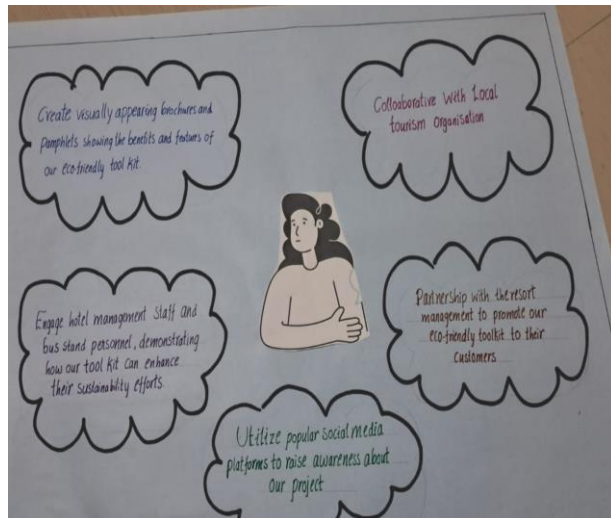 Create visually appearing brochures and
Pamphlets showing the benefits and features of
our eco-friendly tool kit.
Collaborative with Local
tourism Organisation
Engage hotel management staff and
bus stand personnel, demonstrating
how our tool kit can enhance
their sustainability efforts.
Partnership with the resort
management to promote our
eco-friendly toolkit to their
customers
Utilize popular social media
platforms to raise awareness about
our project